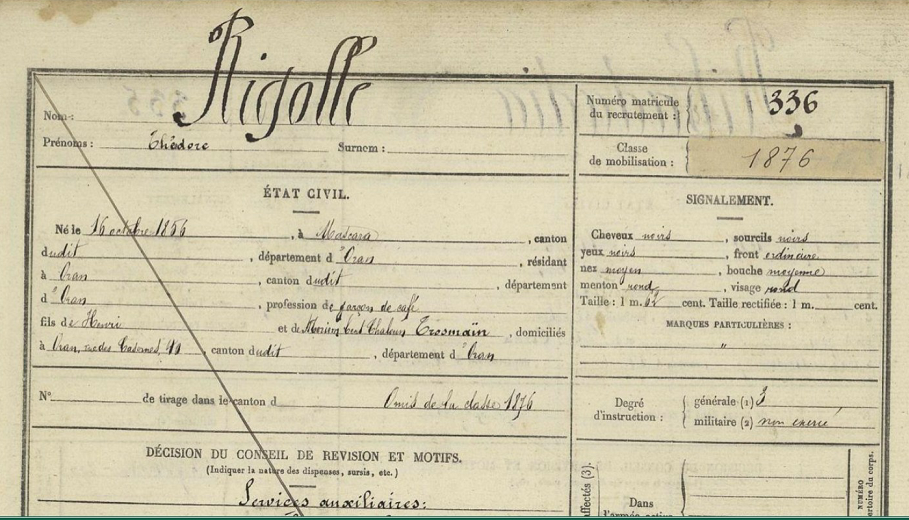 Rigolle
Nom :
Prénoms : Théodore Surnom :
Numéro matricule du recrutement : 336
Classe de mobilisation : 1876
ÉTAT CIVIL.
Né le 16 octobre 1856, à Mascara, canton
dudit, département d'Oran, résidant
à Oran, canton dudit, département
d'Oran, profession de garçon de café
fils de Henri et de, domiciliés
à Oran, rue des Casernes,, canton dudit, département d'Oran
N° de tirage dans le canton d Omis de la classe 1876
DÉCISION DU CONSEIL DE REVISION ET MOTIFS.
(Indiquer la nature des dispenses, sursis, etc.)
Services auxiliaires:
SIGNALEMENT.
Cheveux noirs, sourcils noirs
yeux noirs, front ordinaire
nez moyen, bouche moyenne
menton rond, visage rond
Taille : 1 m. cent. Taille rectifiée : 1 m. cent.
MARQUES PARTICULIÈRES :
"
Degré d'instruction : générale (1) 3
militaire (2) non exercé
affectés (3).
Dans
l'armée active
NUMÉRO
ertoire du corps.